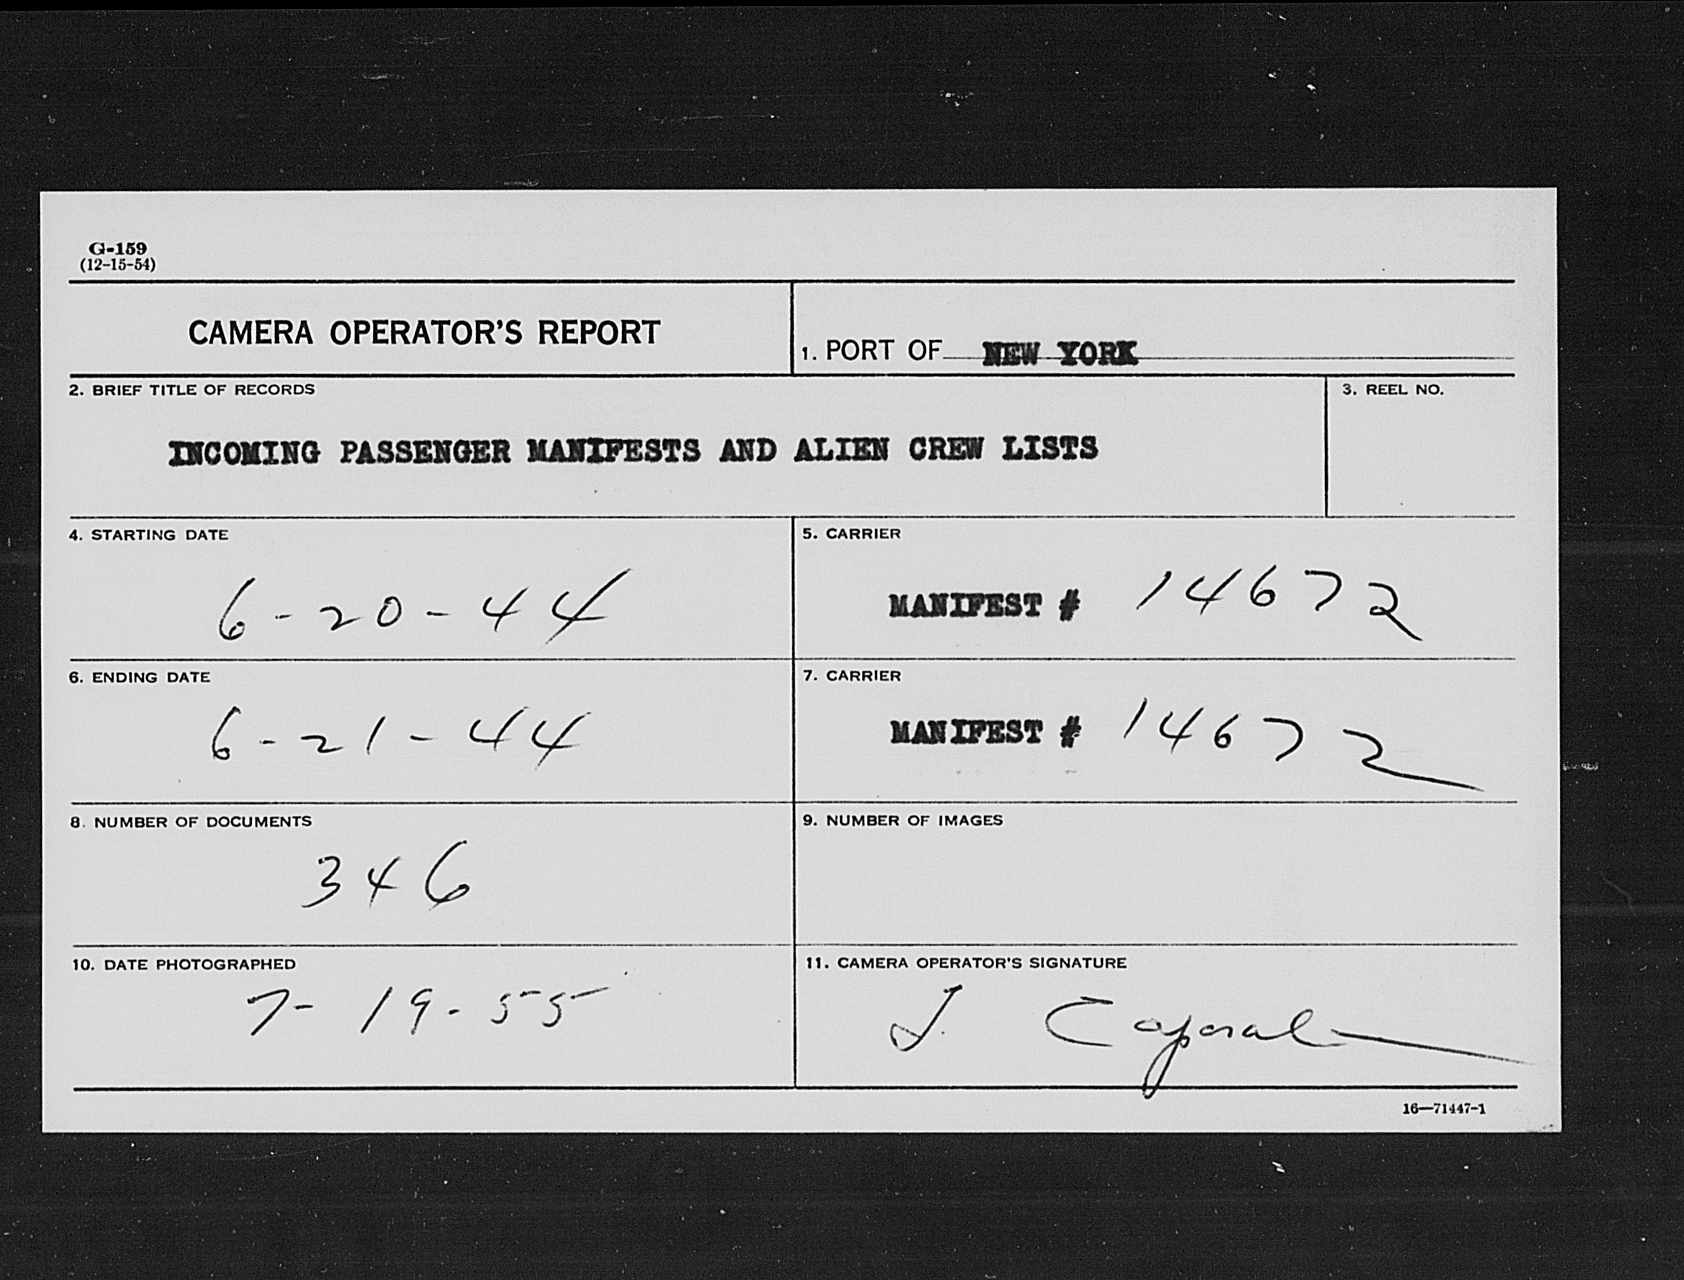 G-159
(12-15-54)
CAMERA OPERATOR'S REPORT
1. PORT OF NEW YORK
2. BRIEF TITLE OF RECORDS
3. REEL NO.
INCOMING PASSENGER MANIFESTS AND ALIEN CREW LISTS
4. STARTING DATE
5. CARRIER
6-20-44
MANIFEST # 14672
6. ENDING DATE
7. CARRIER
6-21-44
MANIFEST # 14672
8. NUMBER OF DOCUMENTS
9. NUMBER OF IMAGES
346
10. DATE PHOTOGRAPHED
11. CAMERA OPERATOR'S SIGNATURE
7-19-55
J. Caporal
16—71447-1